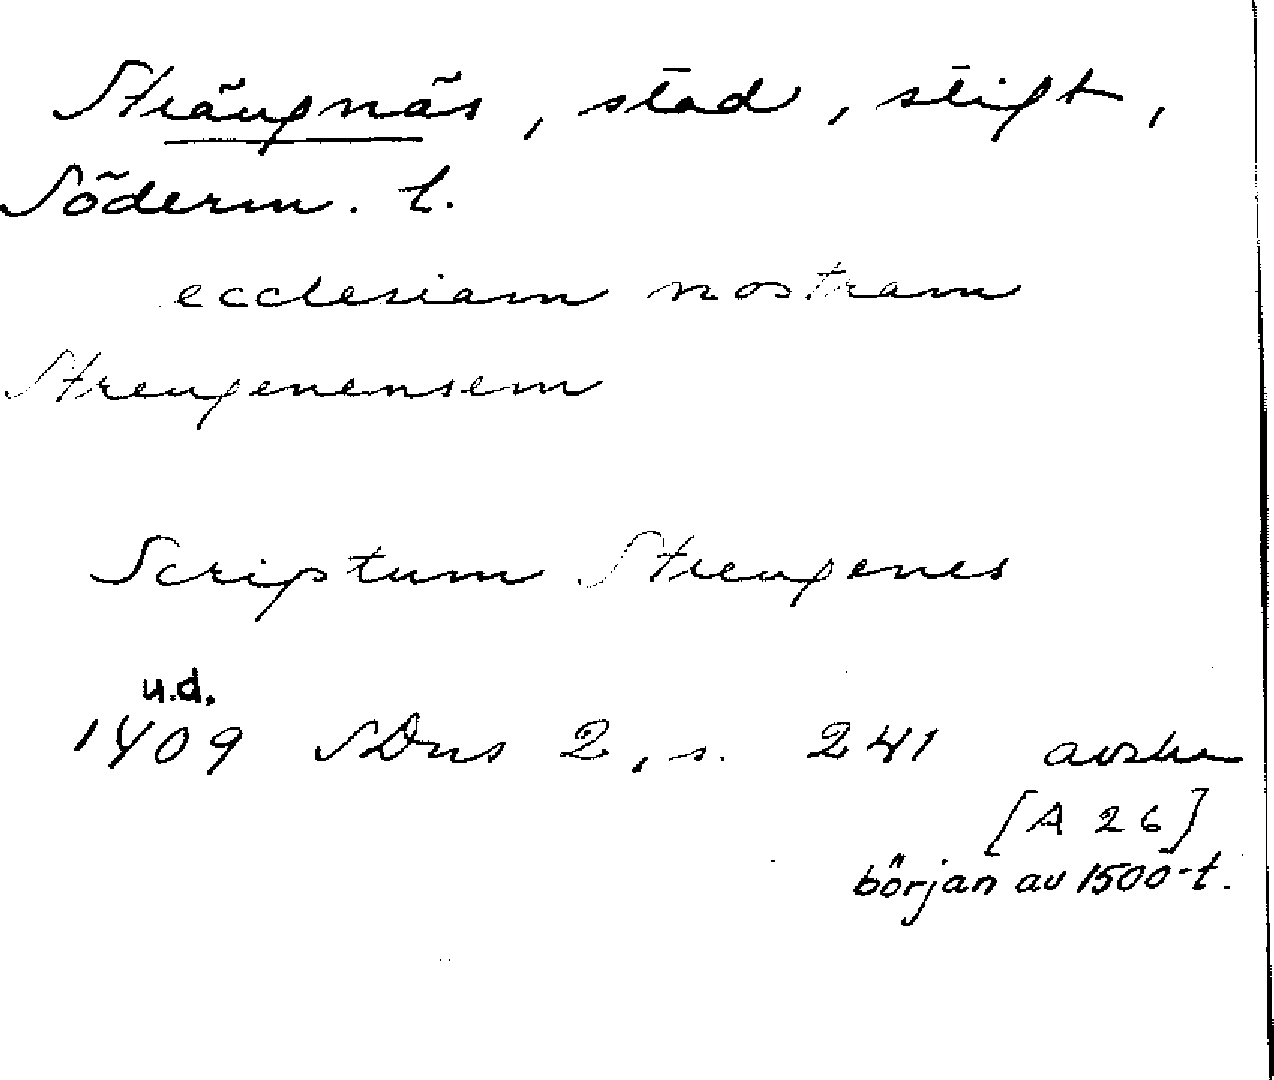 Strängnäs, stad, stift,
Söderm. l.
ecclesiam nostram
Strengenensem
Scriptum Strengenes
u.d.
1409 SDns 2, s. 241 avskr
[A 26]
början av 1500-t.